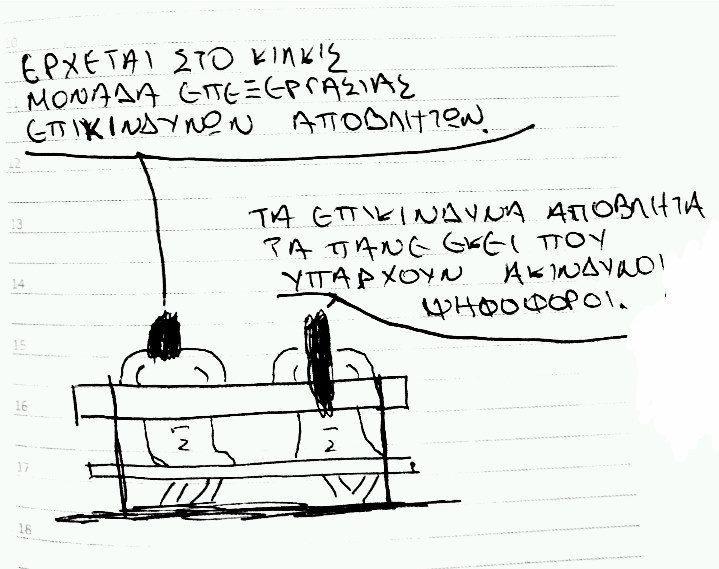 ΕΡΧΕΤΑΙ ΣΤΟ ΚΙΛΚΙΣ
ΜΟΝΑΔΑ ΕΠΕΞΕΡΓΑΣΙΑΣ
ΕΠΙΚΙΝΔΥΝΩΝ ΑΠΟΒΛΗΤΩΝ.
ΤΑ ΕΠΙΚΙΝΔΥΝΑ ΑΠΟΒΛΗΤΑ
ΤΑ ΠΑΝΕ ΕΚΕΙ ΠΟΥ
ΥΠΑΡΧΟΥΝ ΑΚΙΝΔΥΝΟΙ
ΨΗΦΟΦΟΡΟΙ.
12
13
14
15
16
17
18